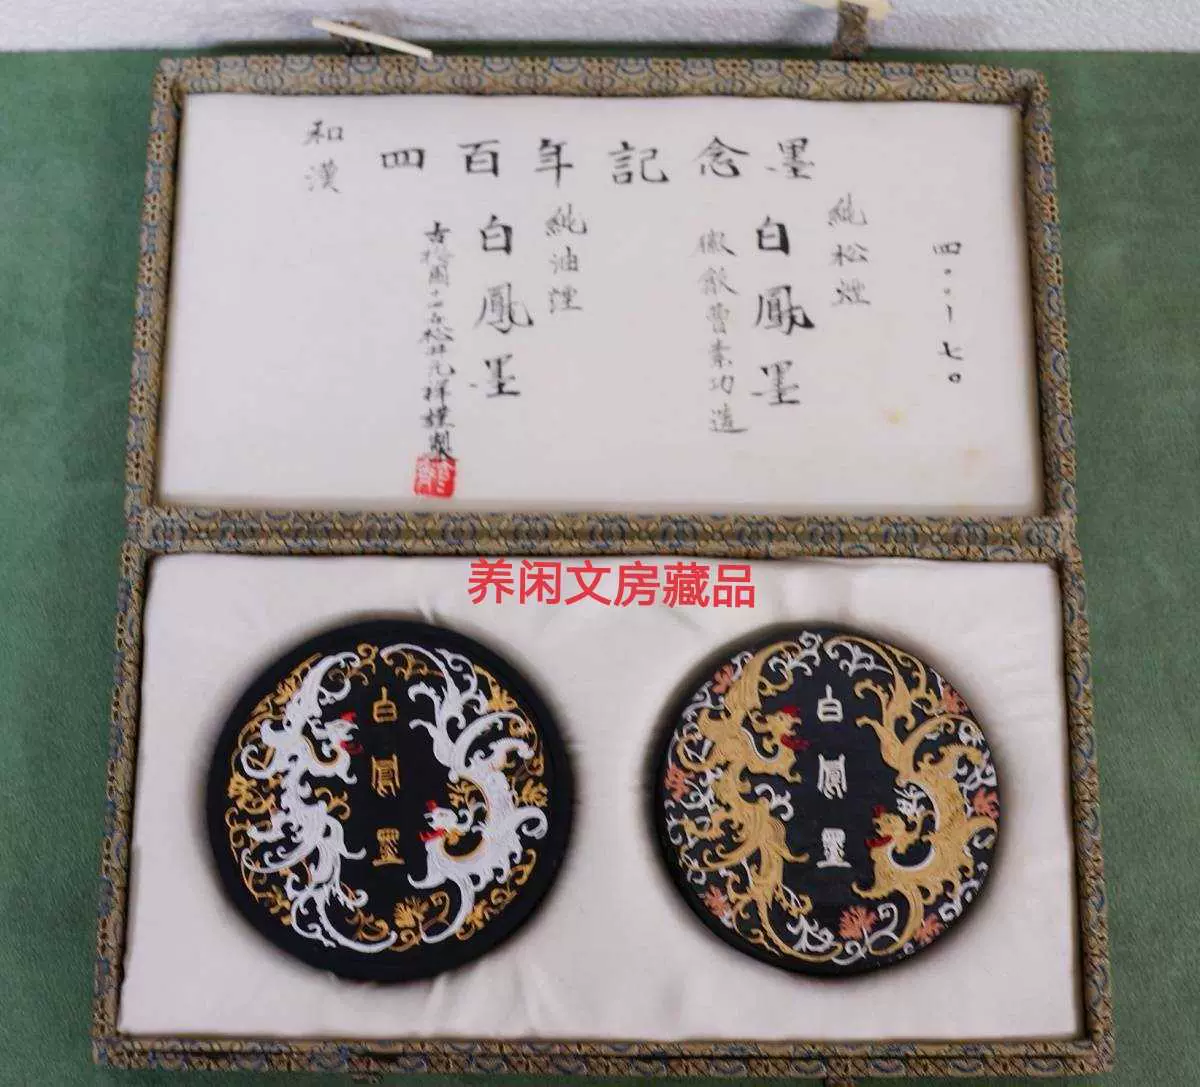 和漢
四百年記念墨
四〇〇-七〇
純松煙
白鳳墨
徽歙曹素功造
純油煙
白鳳墨
古梅園 松井元祥謹製
养闲文房藏品
白鳳墨
白鳳墨